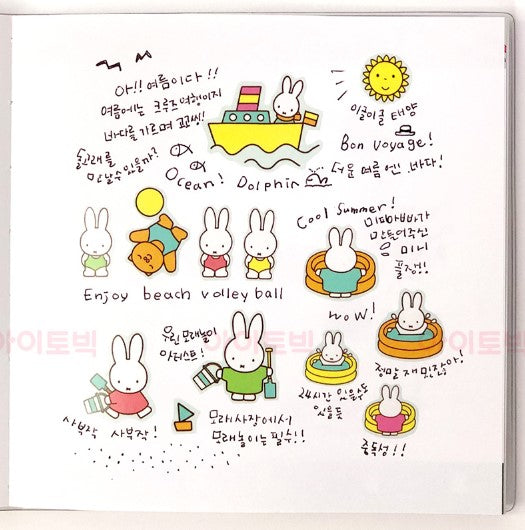 아!! 여름이다!!
여름에는 크루즈여행이지
바다를 가르며 꼬씽!!
돌고래를
만날수있을까?
Ocean! Dolphin
이글이글 태양
Bon Voyage!
더운 여름엔 바다!
Cool Summer!
미피아빠가
만들어주신
미니
풀장!!
Enjoy beach volley ball
WOW!
우린 모래놀이
아티스트!
정말 재밌잖아!
24시간 있을수도
있을듯
중독성!!
사부작 사부작!
모래사장에서
모래놀이는 필수!!
아이토빅
아이토빅